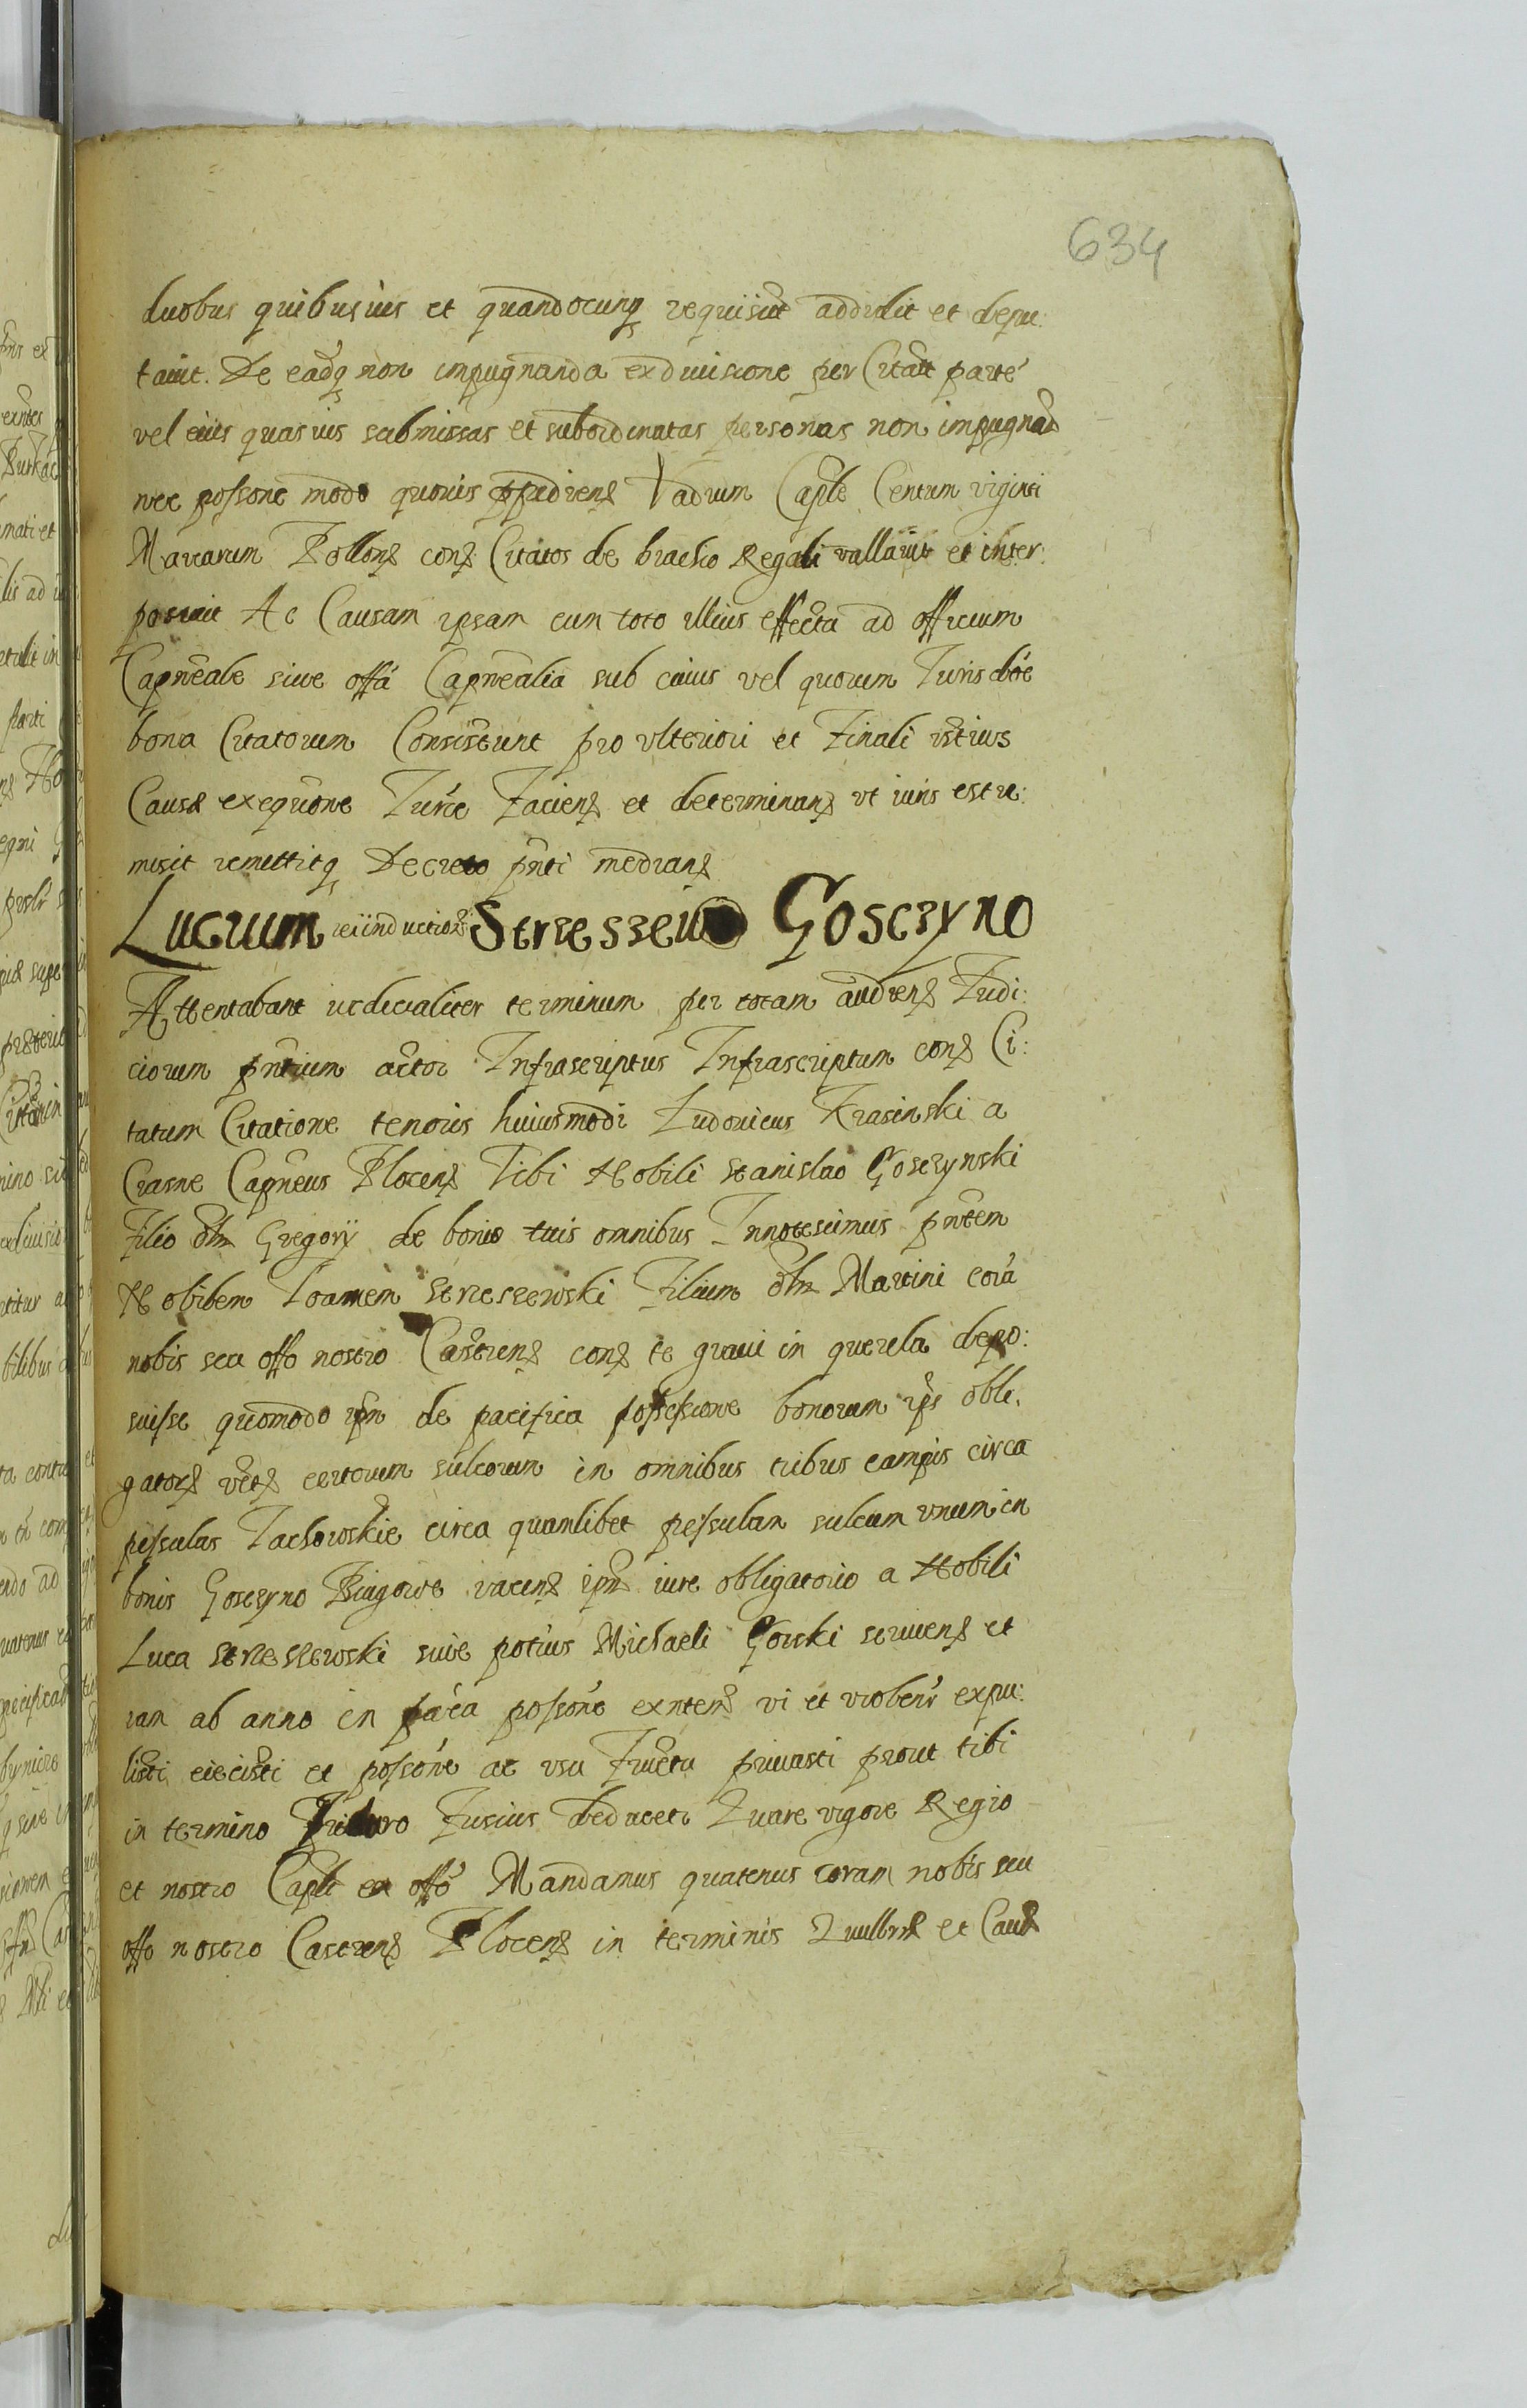 634
duobus quibusuis et quandocunq requisiut addidit et depu:
tauit. De eadq non impugnanda exdiuisione per Citatt parte
vel eius quasuis submissas et subordinatas personas non impugnad
nec possone modo quouis Vadium Caple Centum viginti
Marcarum Pollon cons Citatos de brachio Regali vallauit et inter:
posuit Ac Causam ipsam cum toto illius effectu ad officium
Capneale siue offa Capnealia sub cuius vel quorum Juris doe
bona Citatorum Consistunt pro vlteriori et Finali istius
Causæ exequone Jurce Faciens et determinans vt iuris est re:
misit remittitq Decreto pnti medians
Lucrum reiinductions Strzeszewo Gosczyno
Attentabant iudicialiter terminum per totam audiens Judi:
ciorum pntium actor Infrascriptus Infrascriptum cons Ci:
tatum Citatione tenoris huiusmodi Ludouicus Krasinski a
Crasne Capneus Plocens Tibi Nobili Stanislao Gosczynski
Filio olim Gregory de bonis tuis omnibus Innotescimus pntem
Nobilem Joannem Strzeszewski Filium olim Martini cora
nobis seu offo nostro Castrens cons te graui in querela depo:
suisse quomodo ipm de pacifica possessione bonorum ips obli.
gators certorum sulcorum in omnibus tribus campis circa
pessulas Lachowskie circa quamlibet pessulam sulcum vnum in
bonis Gosczyno iacens ipm iure obligatorio a Nobili
Luca Strzeszewski siue potius Michaeli Gorski seruiens et
iam ab anno in paca possone exntens vi et violenr expu:
listi eiecisti et possone ac vsu Fructu priuasti prout tibi
in termino Futuro Fusius deducetr Quare vigore Regio
et nostro Capli ex offo Mandamus quatenus coram nobis seu
offo nostro Castrens Plocens in terminis et Caus